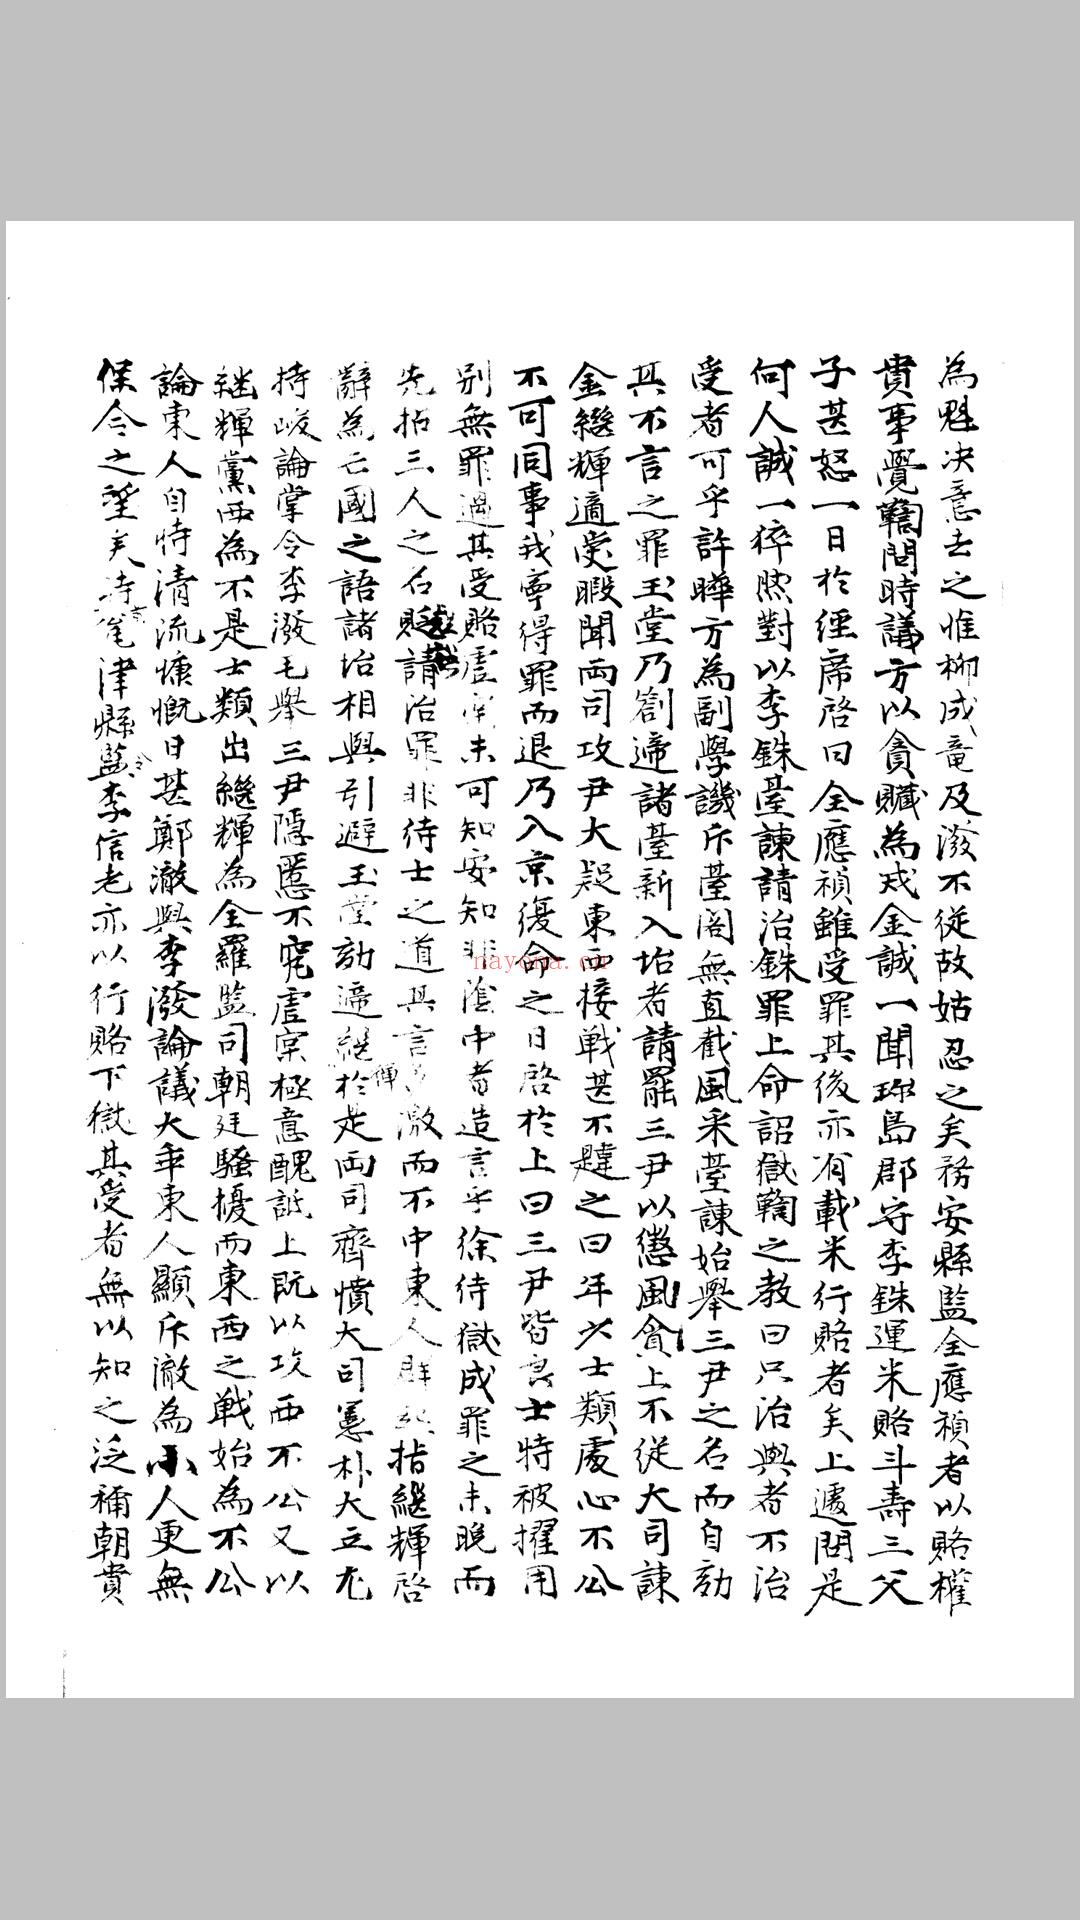 為魁决意去之惟柳成竜及潑不従故姑忍之矣務安縣監全應禎者以賂權
貴事覺鞫問時議方以貪贓為戒金誠一聞珎島郡守李銖運米賂斗壽三父
子甚怒一日於經席啓曰全應禎雖受罪其後亦有載米行賂者矣上遽問是
何人誠一猝然對以李銖䑓諫請治銖罪上命詔獄鞫之教曰只治與者不治
受者可乎許曄方為副學譏斥䑓閣無直截風采䑓諫始舉三尹之名而自劾
其不言之罪玉堂乃劄遞諸䑓新入坮者請罷三尹以懲風貪上不従大司諫
金繼輝適受暇聞両司攻尹大疑東西接戦甚不韙之曰年少士類處心不公
不可同事我寧得罪而退乃入京復命之日啓於上曰三尹皆良士特被擢用
别無罪過其受賂虛実未可知安知非陰中者造言乎徐待獄成罪之未晚而
先招三人之名請治罪非待士之道其言激而不中東人群起指繼輝啓
辭為亡國之語諸坮相與引避玉堂劾遞繼輝於是両司齊憤大司憲朴大立尤
持峻論掌令李潑毛舉三尹隱慝不究虛実極意醜詆上既以攻西不公又以
継輝黨西為不是士類出繼輝為全羅監司朝廷騷擾而東西之戦始為不公
論東人自恃清流慷慨日甚鄭澈與李潑論議大乖東人顯斥澈為小人更無
保合之望矣時津縣監李信老亦以行賂下獄其受者無以知之泛稱朝貴
nayona.cn